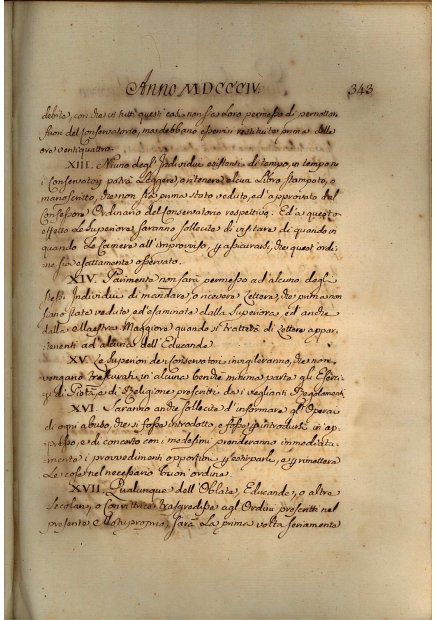 Anno MDCCCIV. 343
debite, con che in tutti questi casi non sia loro permesso di pernottar
fuori del Conservatorio, ma debbano esservi restituite prima delle
ore ventiquattro.
XIII. Niuno degl' Individui esistenti di tempo, in tempo ne
i Conservatorj potrà leggere, o ritenere alcun Libro stampato, o
manoscritto, che non sia prima stato veduto, ed approvato dal
Confessore Ordinario del Conservatorio respettivo. Ed a questo
effetto le Superiore saranno sollecite di visitare di quando in
quando le Camere all' improvviso, per assicurarsi, che quest' ordi-
ne sia esattamente osservato.
XIV. Parimente non sarà permesso ad' alcuno degli
stessi Individui di mandare, o ricevere Lettere, che prima non
siano state vedute ed esaminate dalla Superiora, ed anche
dalla Maestra Maggiore quando si tratterà di Lettere appar-
tenenti ad alcuna dell' Educande.
XV. Le Superiori dei Conservatori invigileranno, che non
vengano trascurati in alcuna benchè minima parte gli Eserci-
zj di Pietà, e di Religione prescritti da i veglianti Regolamenti.
XVI. Saranno anche sollecite d' informare gli Operai
di ogni abuso, che si fosse introdotto, o fosse per introdursi in ap-
presso, e di concerto con i medesimi prenderanno immediata-
mente i provvedimenti opportuni per estirparlo, e per rimettere
le cose nel necessario buon' ordine.
XVII. Qualunque dell' Oblate, Educande, o altre
Secolari, o Convittrice trasgredisse agl Ordini prescritti nel
presente Motuproprio, sarà la prima volta seriamente